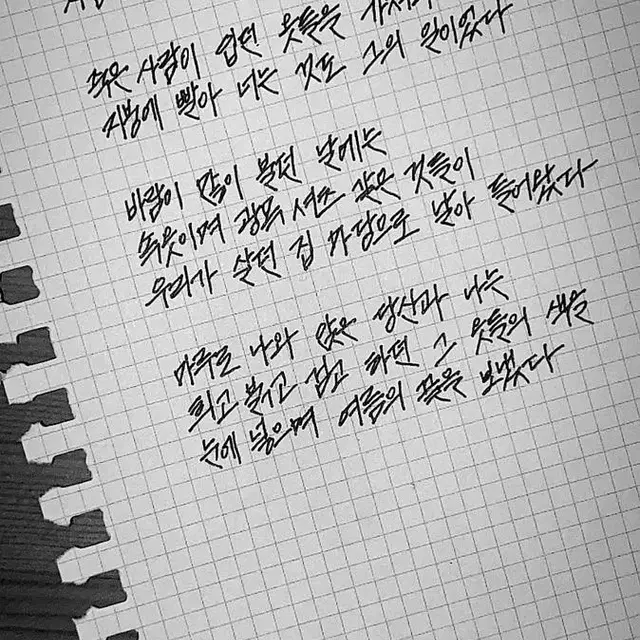 죽은 사람이 입던 옷들을 가져다
지붕에 빨아 너는 것도 그의 일이었다
바람이 많이 불던 날에는
속옷이며 광목 셔츠 같은 것들이
우리가 살던 집 마당으로 날아 들어왔다
마루로 나와 앉은 당신과 나는
희고 붉고 검고 하던 그 옷들의 색을
눈에 넣으며 여름의 끝을 보냈다